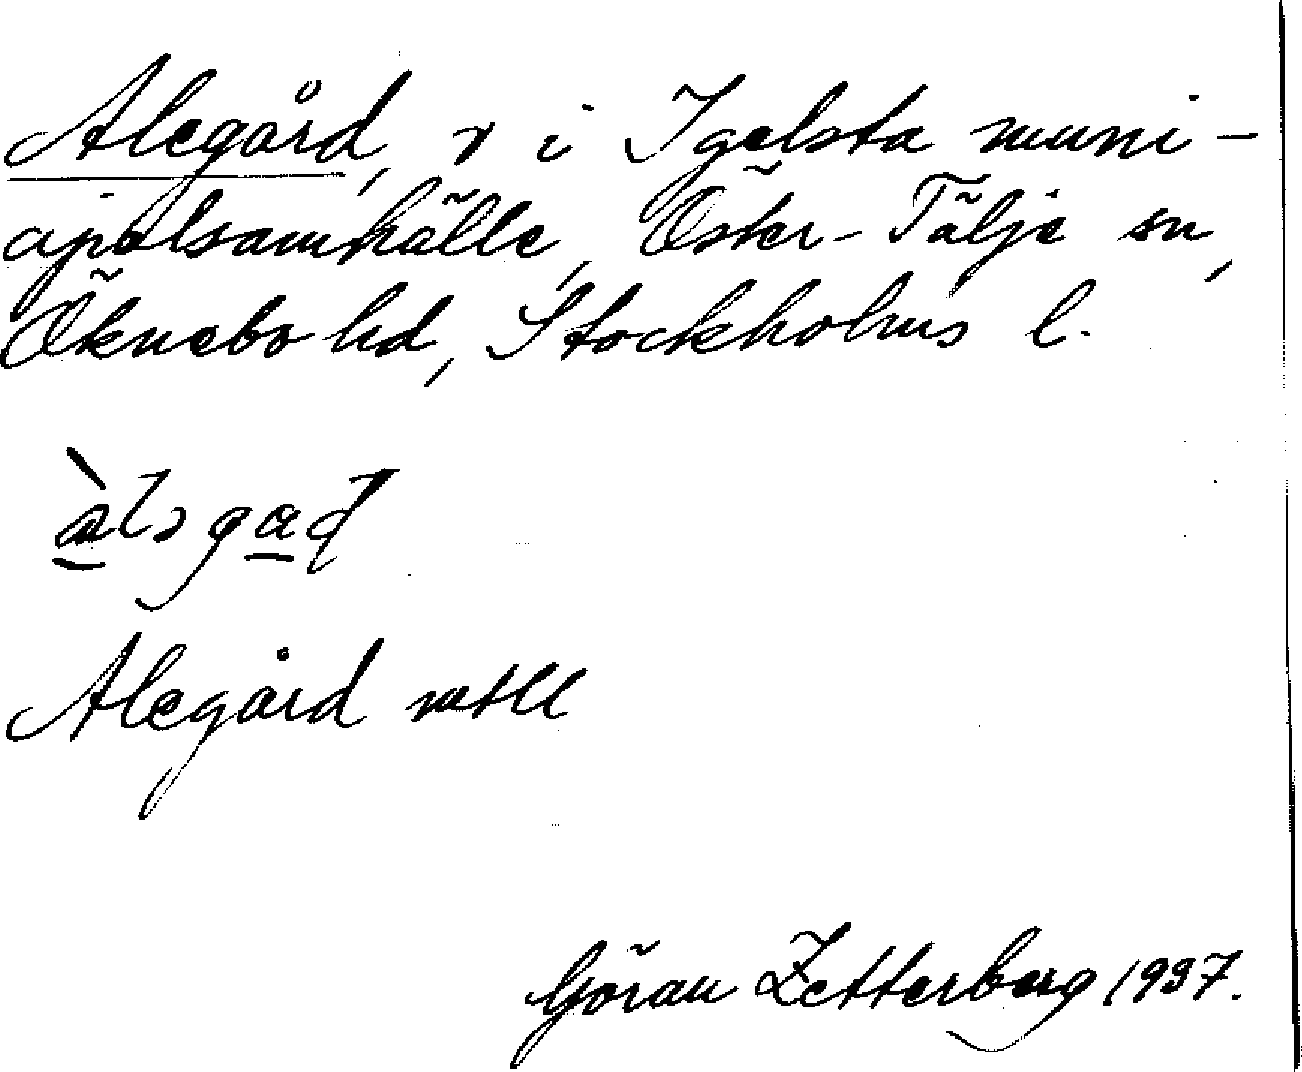 Alegård, v i Igelsta muni-
cipalsamhälle, Öster-Tälje sn,
Öknebo hd, Stockholms l.
Alegård mtll
Göran Zetterberg 1937.